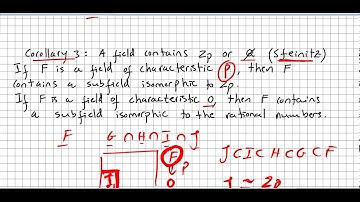 Corollary 3: A field contains Zp or Q (Steinitz)
If F is a field of characteristic p, then F
contains a subfield isomorphic to Zp.
If F is a field of characteristic 0, then F contains
a subfield isomorphic to the rational numbers.
F G ∩ H ∩ I ∩ J
F
J ⊂ I ⊂ H ⊂ G ⊂ F
p
0
J ≈ Zp